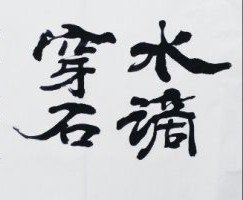 水滴
穿石